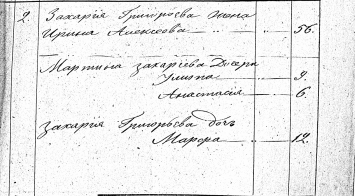 2. Захарія Григорьева жена
Ирина Алексѣева 56.
Мартина Захаріева Дочери
Улита 9.
Анастасія 6.
Захарія Григорьева дочь
Марфа 12.